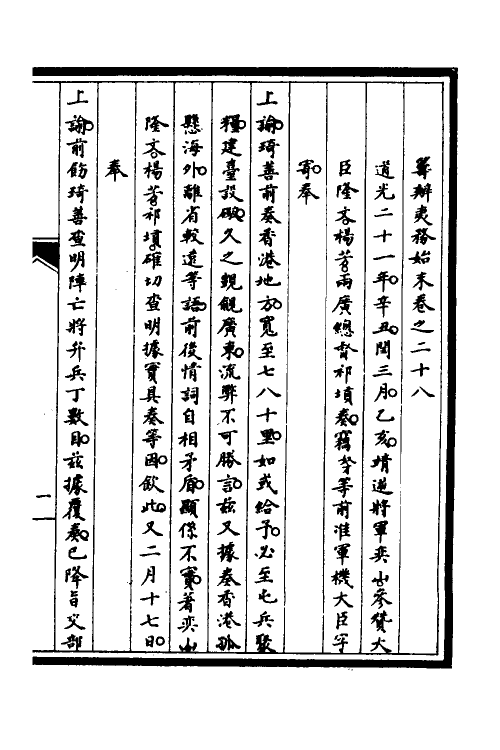 籌辦夷務始末卷之二十八
道光二十一年辛丑閏三月乙亥靖逆將軍奕山參贊大
臣隆文楊芳兩廣總督祁𡎴奏竊奴才等前准軍機大臣字
寄奉
上諭琦善前奏香港地方寬至七八十里如或給予必至屯兵聚
糧建臺設礮久之覬覦廣東流弊不可勝言茲又據奏香港孤
懸海外離省較遠等語前後情詞自相矛盾顯係不實著奕山
隆文楊芳祁𡎴確切查明據實具奏等因欽此又二月十七日
奉
上諭前飭琦善查明陣亡將弁兵丁數目茲據覆奏已降旨交部
一